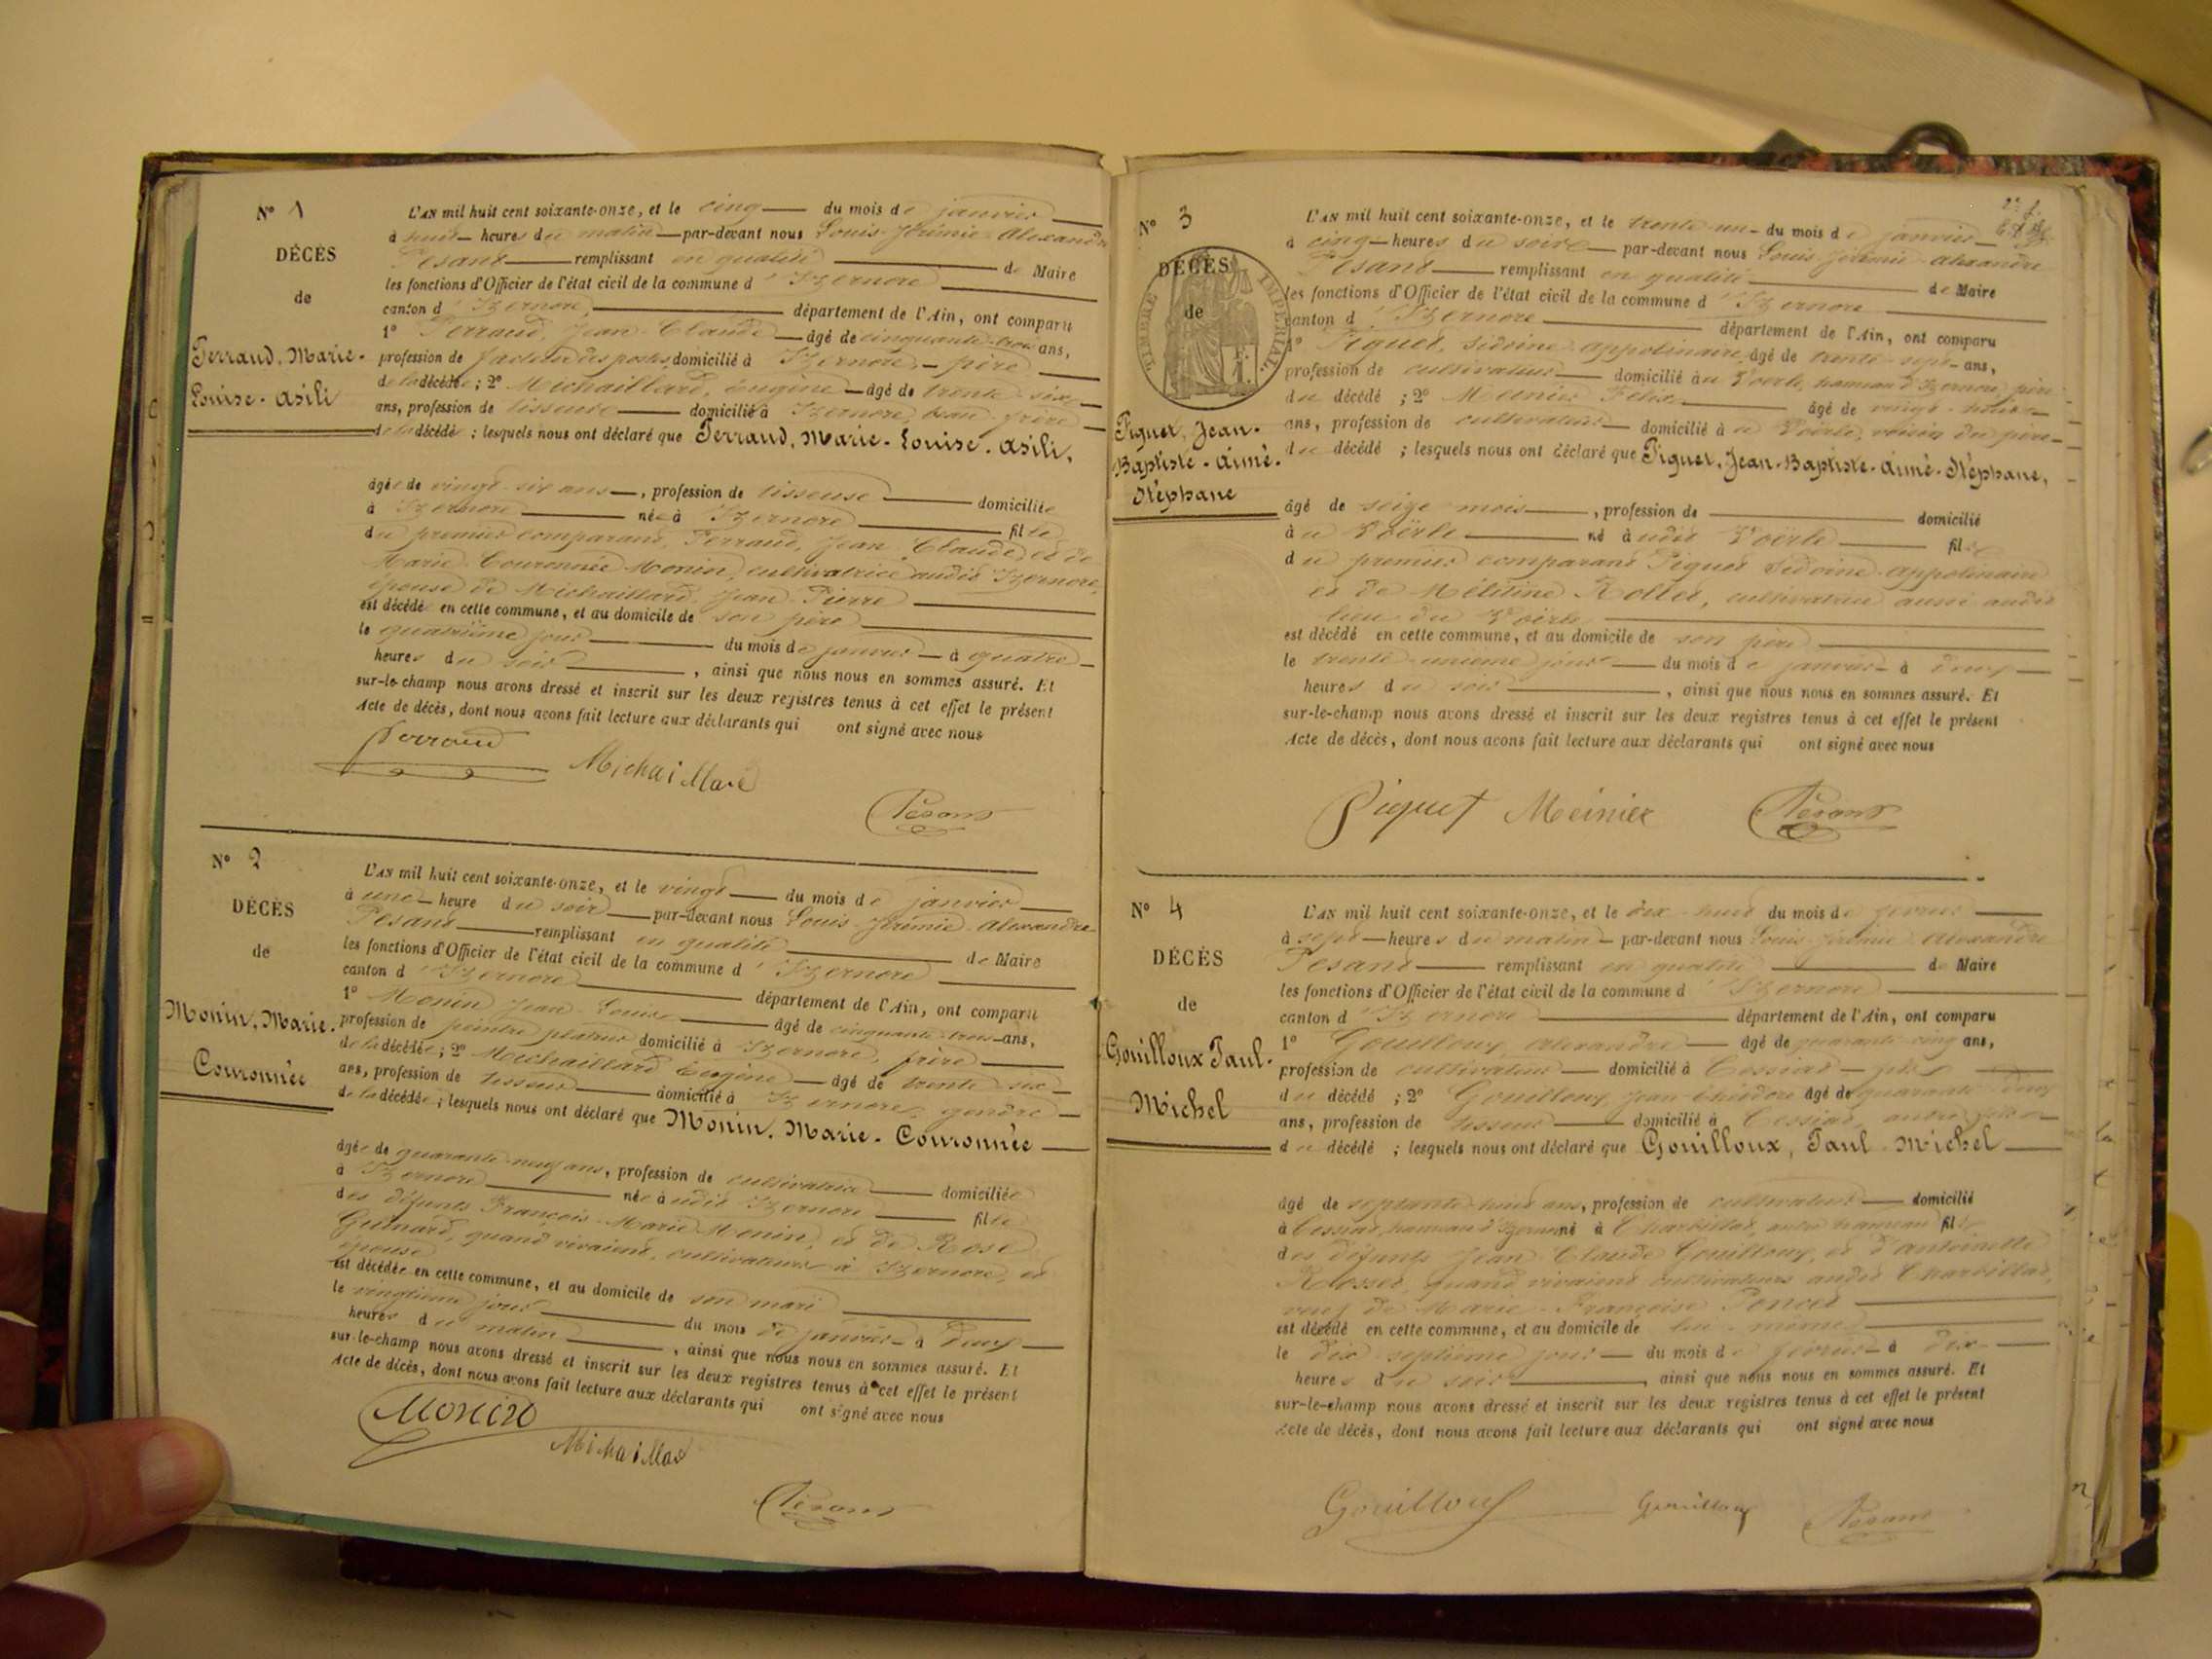 N° 1
DÉCÈS
de
Perraud, Marie-
Louise-Asili
L'AN mil huit cent soixante-onze, et le cinq du mois de janvier
à huit heures du matin par-devant nous Louis Jérémie Alexandre
Pesant remplissant en qualité de Maire
les fonctions d'Officier de l'état civil de la commune d'Izernore
canton d'Izernore, département de l'Ain, ont comparu
1° Perraud, Jean-Claude âgé de cinquante-trois ans,
profession de facteur des postes, domicilié à Izernore, père
de la décédée ; 2° Michaillard, Eugène âgé de trente-six
ans, profession de tisseur domicilié à Izernore, beau-frère
de la décédée ; lesquels nous ont déclaré que Perraud, Marie-Louise-Asili,
âgée de vingt-six ans, profession de tisseuse domiciliée
à Izernore née à Izernore fille
du premier comparant, Perraud, Jean Claude, et de
Marie Couronnée Monin, cultivatrice audit Izernore,
épouse de Michaillard Jean-Pierre
est décédé en cette commune, et au domicile de son père
le quatrième jour du mois de janvier à quatre
heures du soir, ainsi que nous nous en sommes assuré. Et
sur-le-champ nous avons dressé et inscrit sur les deux registres tenus à cet effet le présent
Acte de décès, dont nous avons fait lecture aux déclarants qui ont signé avec nous
Perraud Michaillard
Pesant
N° 2
DÉCÈS
de
Monin, Marie-
Couronnée
L'AN mil huit cent soixante-onze, et le vingt du mois de janvier
à une heure du soir par-devant nous Louis Jérémie Alexandre
Pesant remplissant en qualité de Maire
les fonctions d'Officier de l'état civil de la commune d'Izernore
canton d'Izernore département de l'Ain, ont comparu
1° Monin Jean-Louis âgé de cinquante-trois ans,
profession de peintre platrier domicilié à Izernore, frère
de la décédée ; 2° Michaillard Eugène âgé de trente-six
ans, profession de tisseur domicilié à Izernore, gendre
de la décédée ; lesquels nous ont déclaré que Monin, Marie-Couronnée
âgée de quarante-neuf ans, profession de cultivatrice domiciliée
à Izernore née audit Izernore fille
des défunts François-Marie Monin, et de Rose
Guinard, quand vivaient, cultivateurs à Izernore, et
épouse
est décédée en cette commune, et au domicile de son mari
le vingtième jour du mois de janvier à deux
heures du matin, ainsi que nous nous en sommes assuré. Et
sur-le-champ nous avons dressé et inscrit sur les deux registres tenus à cet effet le présent
Acte de décès, dont nous avons fait lecture aux déclarants qui ont signé avec nous
Monin
Michaillard
Pesant
N° 3
DÉCÈS
de
TIMBRE IMPÉRIAL
Piquet, Jean-
Baptiste-Aimé-
Stéphane
L'AN mil huit cent soixante-onze, et le trente-un du mois de janvier
à cinq heures du soir par-devant nous Louis Jérémie Alexandre
Pesant remplissant en qualité de Maire
les fonctions d'Officier de l'état civil de la commune d'Izernore
canton d'Izernore département de l'Ain, ont comparu
1° Piquet, Sidoine Appolinaire, âgé de trente-sept ans,
profession de cultivateur domicilié au Voërle, hameau d'Izernore, père
du décédé ; 2° Meinier Félix âgé de vingt-huit
ans, profession de cultivateur domicilié au Voërle, voisin du père
du décédé ; lesquels nous ont déclaré que Piquet, Jean-Baptiste-Aimé-Stéphane,
âgé de seize mois, profession de domicilié
au Voërle né audit Voërle fils
du premier comparant Piquet Sidoine Appolinaire
et de Mélitine Rollet, cultivateur aussi audit
lieu du Voërle
est décédé en cette commune, et au domicile de son père
le trente-unième jour du mois de janvier à deux
heures du soir, ainsi que nous nous en sommes assuré. Et
sur-le-champ nous avons dressé et inscrit sur les deux registres tenus à cet effet le présent
Acte de décès, dont nous avons fait lecture aux déclarants qui ont signé avec nous
Piquet Meinier Pesant
N° 4
DÉCÈS
de
Gouilloux Paul-
Michel
L'AN mil huit cent soixante-onze, et le dix-huit du mois de février
à sept heures du matin par-devant nous Louis Jérémie Alexandre
Pesant remplissant en qualité de Maire
les fonctions d'Officier de l'état civil de la commune d'Izernore
canton d'Izernore département de l'Ain, ont comparu
1° Gouilloux, Alexandre âgé de quarante-cinq ans,
profession de cultivateur domicilié à Cessiat fils
du décédé ; 2° Gouilloux, Jean Théodore âgé de quarante-deux
ans, profession de tisseur domicilié à Cessiat, autre fils
du décédé ; lesquels nous ont déclaré que Gouilloux, Paul-Michel
âgé de septante-huit ans, profession de cultivateur domicilié
à Cessiat, hameau d'Izernore né à Charbillat, autre hameau fils
des défunts Jean-Claude Gouilloux, et d'Antoinette
Rosset, quand vivaient cultivateurs audit Charbillat,
veuf de Marie-Françoise Poncet
est décédé en cette commune, et au domicile de lui-même
le dix-septième jour du mois de février à dix
heures du soir, ainsi que nous nous en sommes assuré. Et
sur-le-champ nous avons dressé et inscrit sur les deux registres tenus à cet effet le présent
Acte de décès, dont nous avons fait lecture aux déclarants qui ont signé avec nous
Gouilloux Gouilloux Pesant